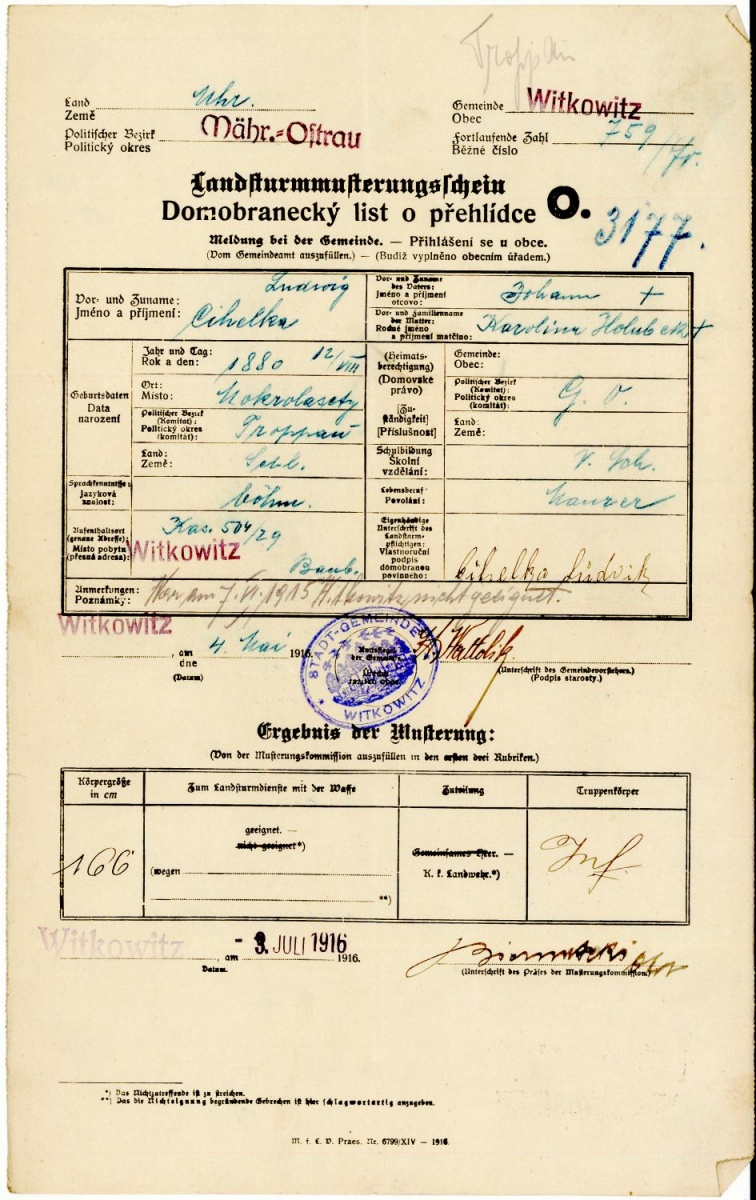 Troppau
Land
Země
Mähr.-Ostrau
Politischer Bezirk
Politický okres
Gemeinde Witkowitz
Obec
Fortlaufende Zahl 759
Běžné číslo
Landsturmmusterungsschein
Domobranecký list o přehlídce O.
3177.
Meldung bei der Gemeinde. — Přihlášení se u obce.
(Vom Gemeindeamt auszufüllen.) — (Budiž vyplněno obecním úřadem.)
Vor- und Zuname: Ludwig
Jméno a příjmení: Cihelka
Vor- und Zuname des Vaters:
Jméno a příjmení otcovo: Johann +
Vor- und Familienname der Mutter:
Rodné jméno a příjmení matčino: Karolina Holubek +
Geburtsdaten
Data narození
Jahr und Tag:
Rok a den: 1880 12/VIII
Ort:
Místo: Mokrolasetz
Politischer Bezirk (Komitat):
Politický okres (komitát): Troppau
Land:
Země: Schl.
(Heimatsberechtigung)
(Domovské právo)
[Zuständigkeit]
[Příslušnost]
Gemeinde:
Obec:
Politischer Bezirk (Komitat):
Politický okres (komitát): G. O.
Land:
Země:
Sprachkenntnisse:
Jazyková znalost: böhm.
Schulbildung
Školní vzdělání: V. Sch.
Lebensberuf
Povolání: Maurer
Aufenthaltsort (genaue Adresse):
Místo pobytu (přesná adresa):
Kas. 504/29
Witkowitz
Eigenhändige Unterschrift des Landsturmpflichtigen:
Vlastnoruční podpis domobranou povinného: Cihelka Ludvik
Anmerkungen:
Poznámky: am 7. VI. 1915 Witkowitz nicht geeignet.
Witkowitz
am
dne 4. Mai 1916.
(Datum)
STADT-GEMEINDE
WITKOWITZ
Amtssiegel der Gemeinde
(Unterschrift des Gemeindevorstehers.)
(Podpis starosty.)
Ergebnis der Musterung:
(Von der Musterungskommission auszufüllen in den ersten drei Rubriken.)
Körpergröße in cm
Zum Landsturmdienste mit der Waffe
Zuteilung
Truppenkörper
166
geeignet. —
nicht geeignet*)
(wegen
**)
Gemeinsames Heer. —
K. k. Landwehr.*)
Inf.
Witkowitz, am - 3. JULI 1916 1916.
Datum.
(Unterschrift des Präses der Musterungskommission.)
*) Das Nichtzutreffende ist zu streichen.
**) Das die Nichteignung begründende Gebrechen ist hier schlagwortartig anzugeben.
M. f. L. V. Praes. Nr. 6799/XIV — 1916.